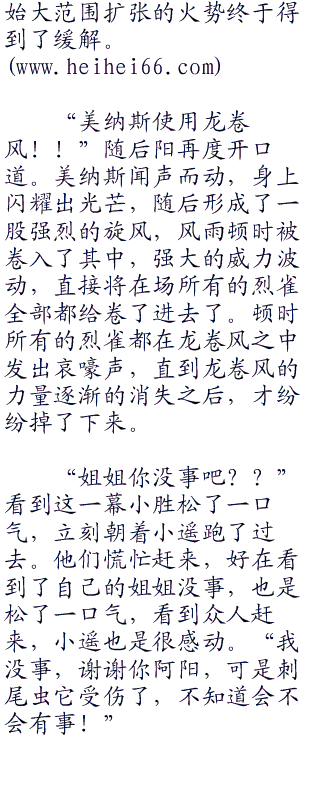 始大范围扩张的火势终于得
到了缓解。
(www.heihei66.com)
“美纳斯使用龙卷
风！！”随后阳再度开口
道。美纳斯闻声而动，身上
闪耀出光芒，随后形成了一
股强烈的旋风，风雨顿时被
卷入了其中，强大的威力波
动，直接将在场所有的烈雀
全部都给卷了进去了。顿时
所有的烈雀都在龙卷风之中
发出哀嚎声，直到龙卷风的
力量逐渐的消失之后，才纷
纷掉了下来。
“姐姐你没事吧？？”
看到这一幕小胜松了一口
气，立刻朝着小遥跑了过
去。他们慌忙赶来，好在看
到了自己的姐姐没事，也是
松了一口气，看到众人赶
来，小遥也是很感动。“我
没事，谢谢你阿阳，可是刺
尾虫它受伤了，不知道会不
会有事！”